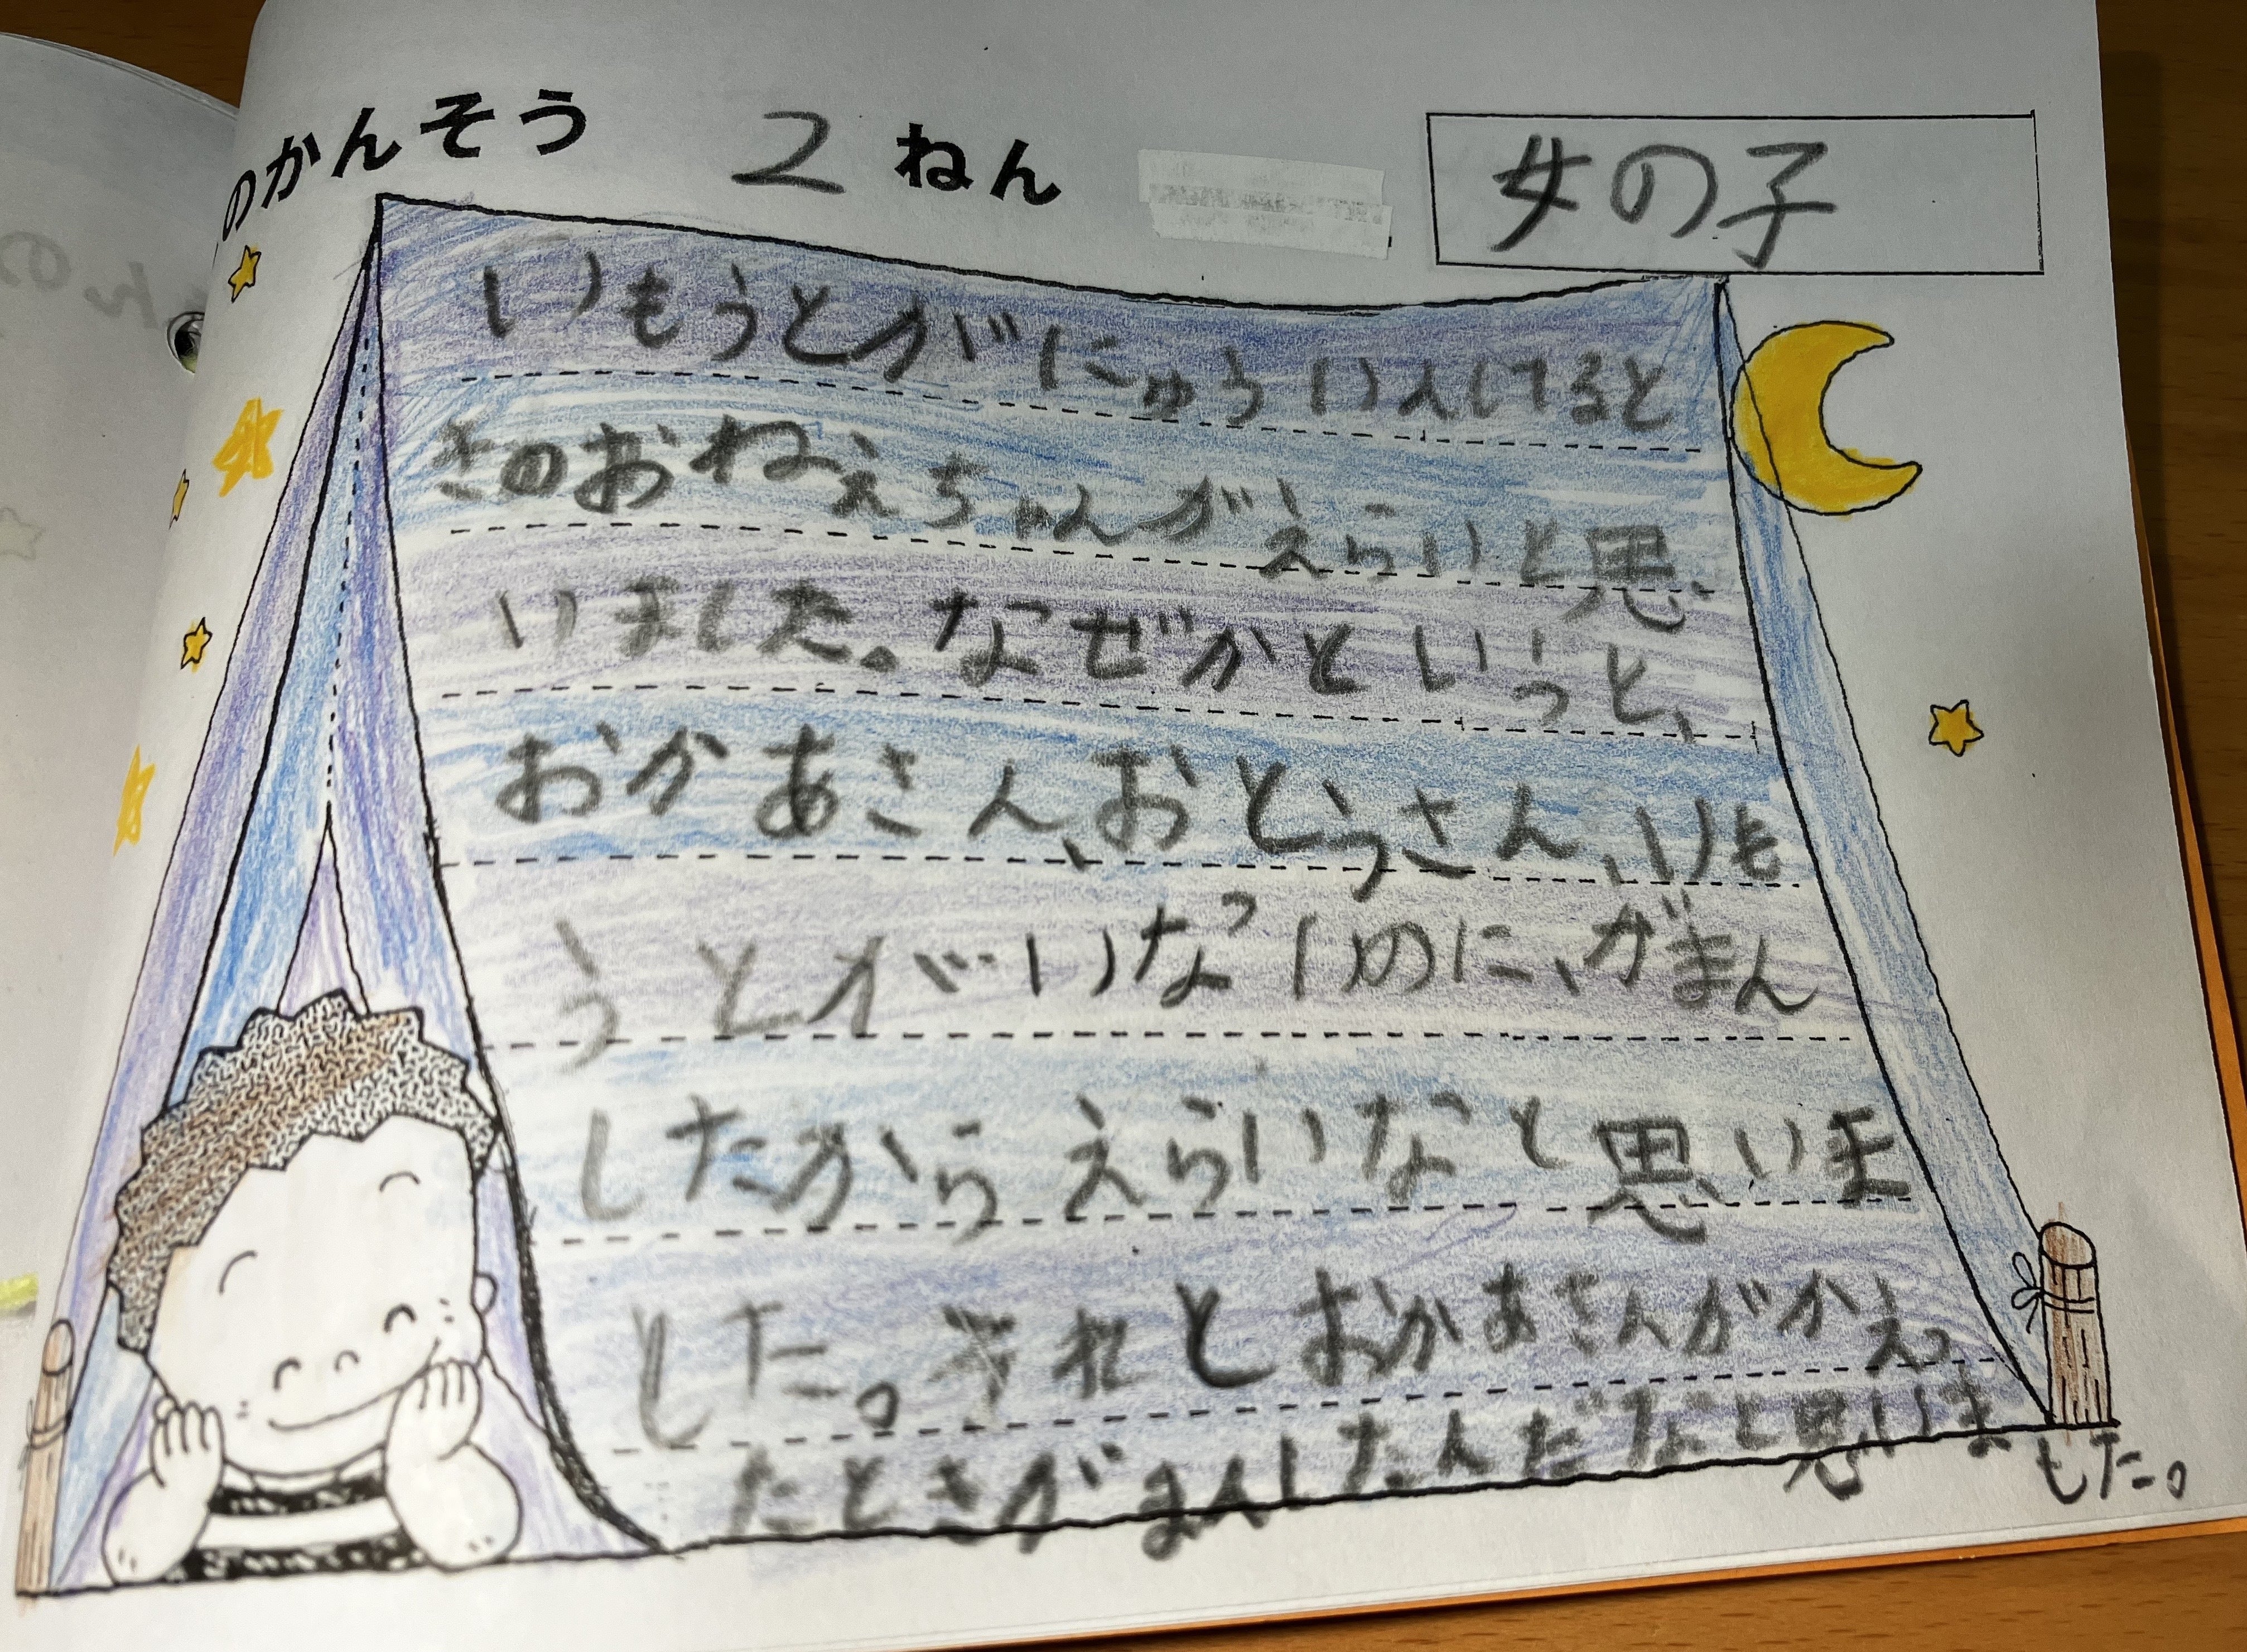 のかんそう 2ねん 女の子
いもうとがにゅういんしてると
きのおねえちゃんがえらいと思
いました。なぜかというと、
おかあさん、おとうさん、いも
うとがいないのに、がまん
したからえらいなと思いま
した。それとおかあさんがかえっ
たときがまんしたんだなと思いま
した。